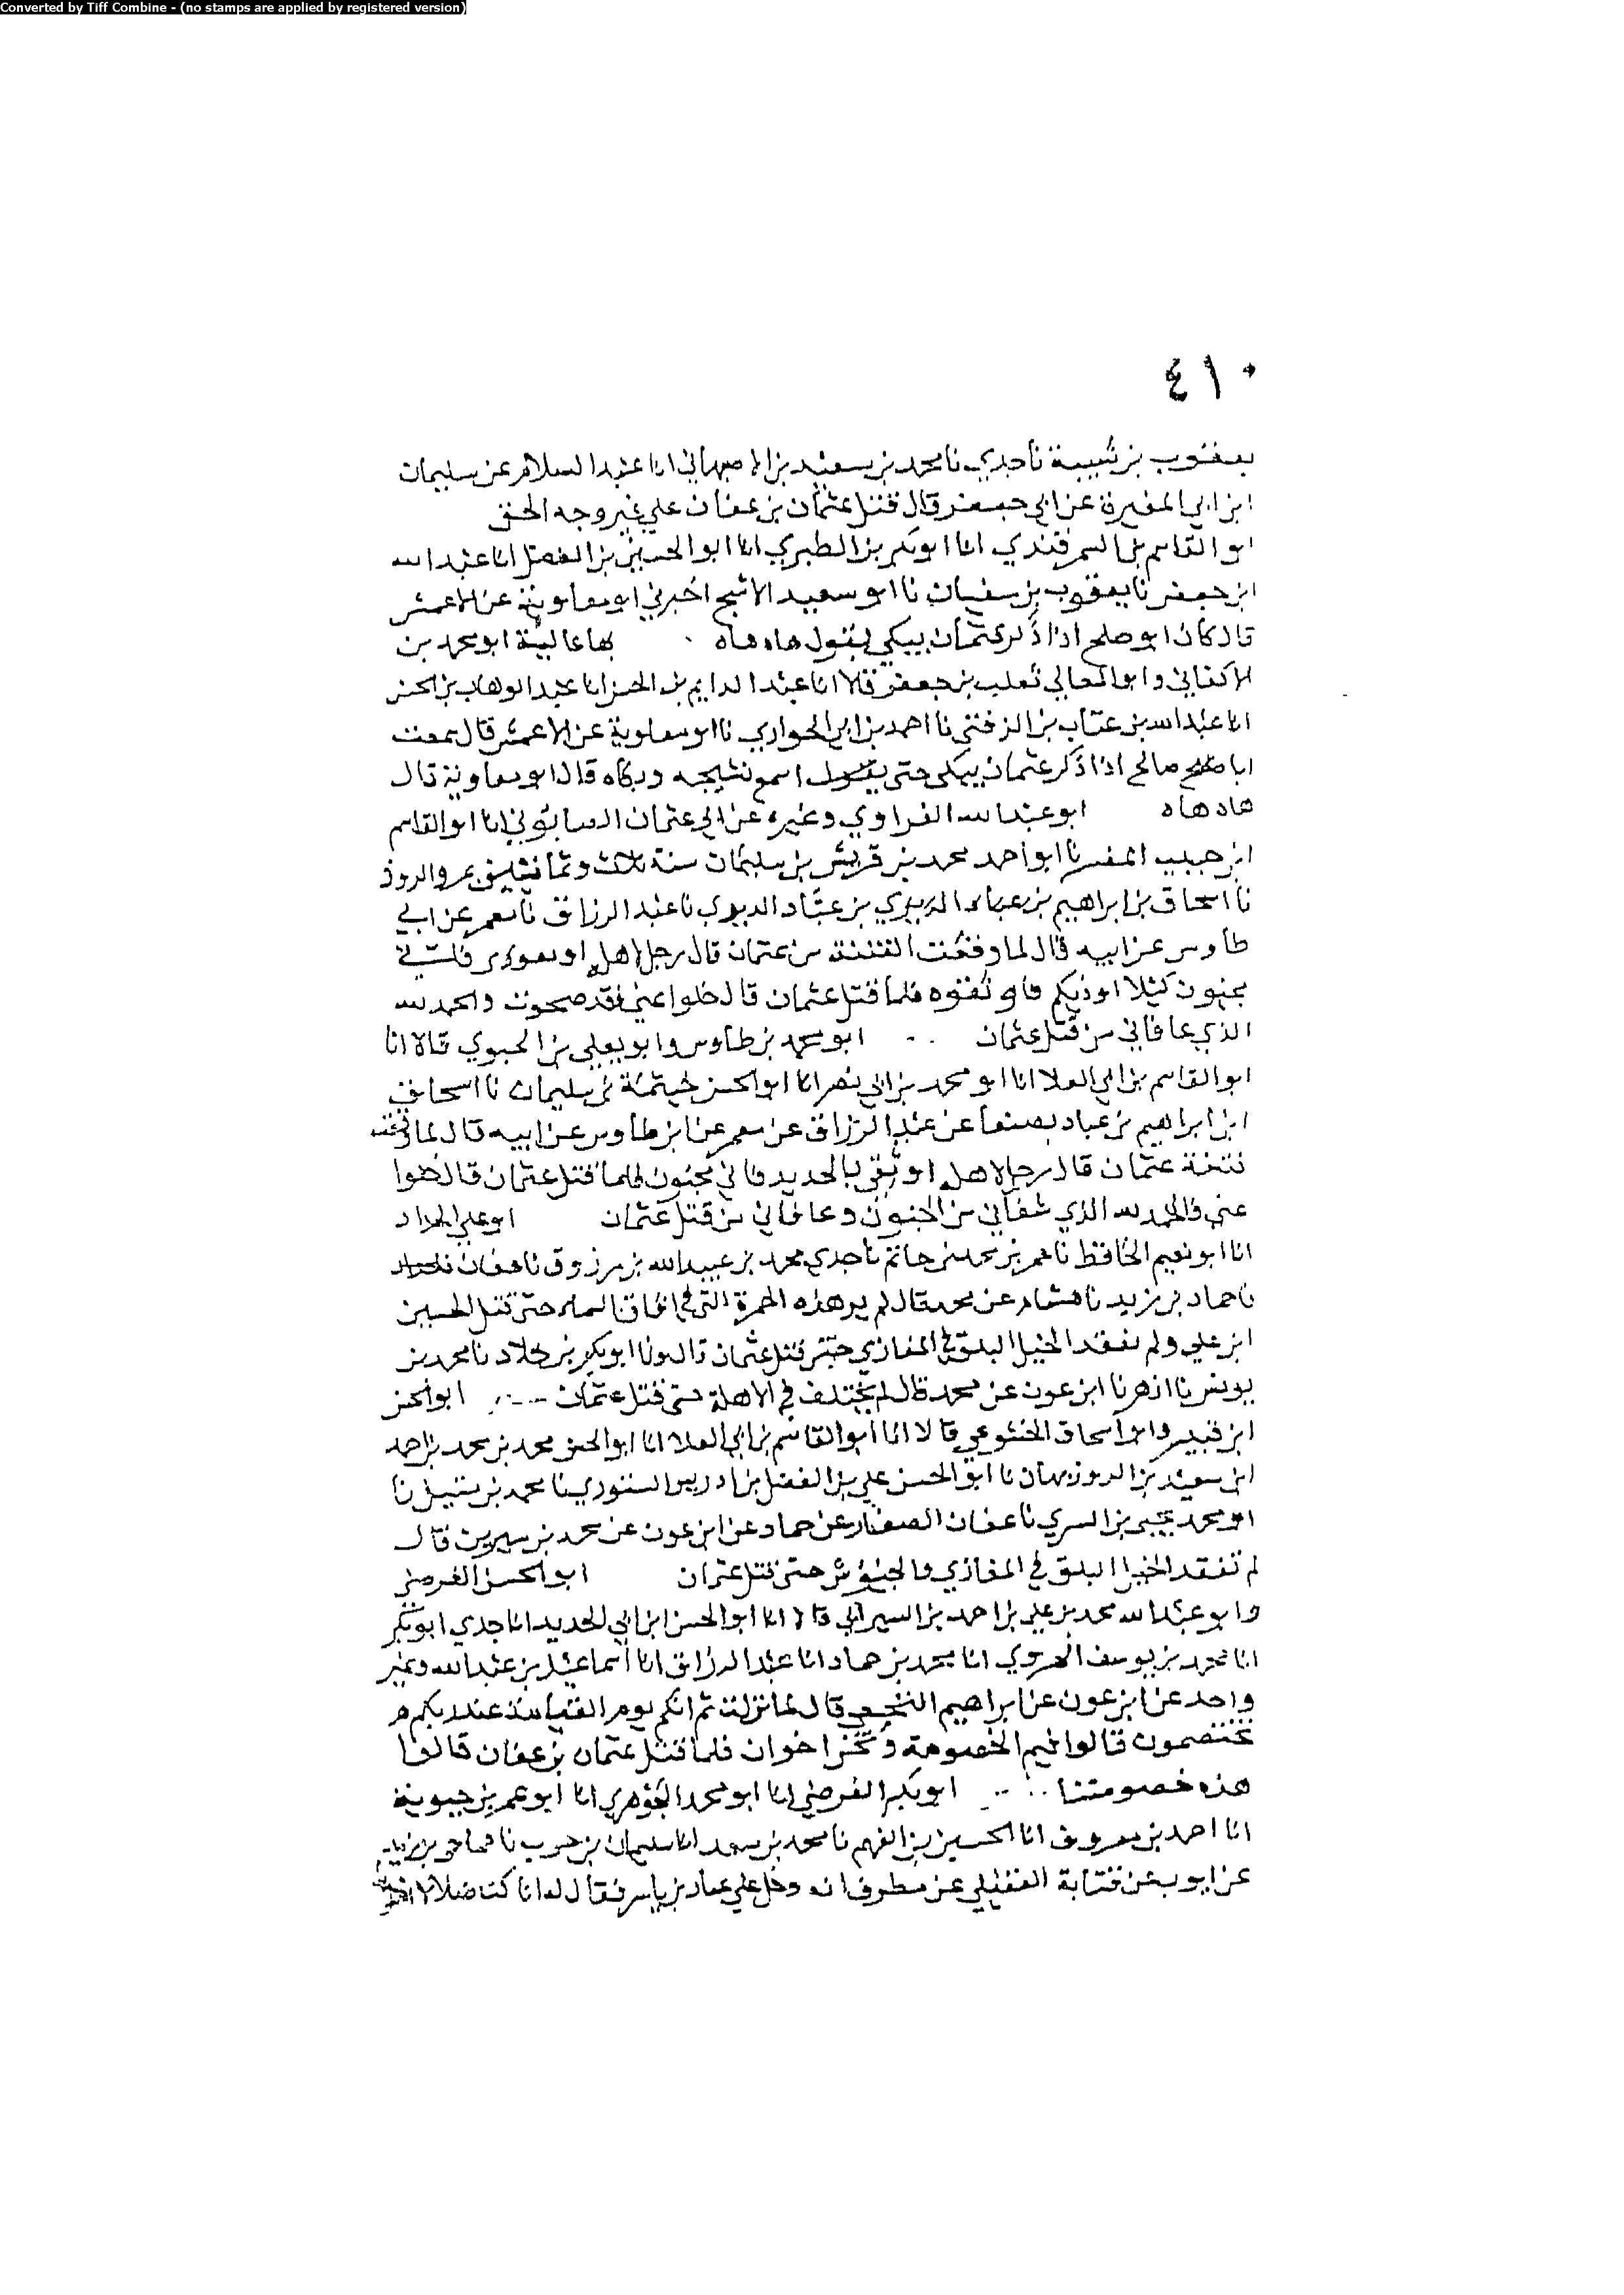 Converted by Tiff Combine - (no stamps are applied by registered version)
٤١٠
يعقوب بن شيبة نا جدي نا محمد بن سعيد بن الاصبهاني انا عبد السلام عن سليمان
ابن ابي المغيرة عن ابي جعفر قال قتل عثمان بن عفان علي غير وجه الحق
ابو القاسم بن السمرقندي انا ابو بكر بن الطبري انا ابو الحسين بن الفضل انا عبد الله
ابن جعفر نا يعقوب بن سفيان نا ابو سعيد الاشج اخبرني ابو معاوية عن الاعمش
قال كان ابو صلح اذا ذكر عثمان يبكي يقول هاه هاه بها عالية ابو محمد بن
الاكفاني وابو المعالي ثعلب بن جعفر قالا انا عبد الدايم بن الحسن انا عبد الوهاب بن الحسن
انا عبد الله بن عتاب بن الزفتي نا احمد بن ابي الحواري نا ابو معاوية عن الاعمش قال سمعت
ابا صالح اذا ذكر عثمان يبكي حتى اسمع نشيجه وبكاه قال ابو معاوية قال
هاه هاه ابو عبد الله الفراوي وغيره عن ابي عثمان الصابوني انا ابو القاسم
ابن حبيب المفسر نا ابو احمد محمد بن قريش بن سليمان سنة ثلاث وثمانين بمرو الروذ
نا اسحاق بن ابراهيم بن عباد الدبري بن عباد الدبري نا عبد الرزاق نا معمر عن ابي
طاوس عن ابيه قال لما وقعت الفتنة من عثمان قال رجل لاهله
بجنون كيلا اوذيكم فاوثقوه فلما قتل عثمان قال خلوا عني فقد صحوت والحمد لله
الذي عافاني من قتل عثمان ابو محمد بن طاوس وابو يعلي بن الحبوي قالا انا
ابو القاسم بن ابي العلا انا ابو محمد بن ابي نصر انا ابو الحسن خيثمة بن سليمان نا اسحاق
ابن ابراهيم بن عباد بصنعا عن عبد الرزاق عن معمر عن ابن طاوس عن ابيه قال لما وقعت
فتنة عثمان قال رجل لاهله اوثقني بالحديد فاني مجنون فلما قتل عثمان قال خلوا
عني فالحمد لله الذي شفاني من الجنون وعافاني من قتل عثمان ابو علي الحداد
انا ابو نعيم الحافظ نا عمر بن محمد بن حاتم نا جدي محمد بن عبيد الله بن مرزوق نا عفان
نا حماد بن زيد نا هشام عن محمد قال لم ير هذه الحمرة التي في افاق السماء حتى قتل الحسين
ابن علي ولم تفقد الخيل البلق في المغازي حتى قتل عثمان قال ونا ابو بكر بن خلاد نا محمد بن
يونس نا ازهر نا ابن عون عن محمد قال لم يختلف في الاهلة حتى قتل عثمان ابو الحسن
ابن قبيس وابو اسحاق الخشوعي قالا انا ابو القاسم بن ابي العلا انا ابو الحسن محمد بن محمد بن احمد
ابن سعيد بن الروزبهان نا ابو الحسن علي بن الفضل بن ادريس الستوري نا محمد بن نا
ابو محمد يحيى بن السري نا عفان الصفار عن حماد عن ابن عون عن محمد بن سيرين قال
لم تفقد الخيل البلق في المغازي والجيوش حتى قتل عثمان ابو الحسن الفرضي
وابو عبد الله محمد بن علي بن احمد بن السيرافي قالا انا ابو الحسن ابن ابي الحديد انا جدي ابو بكر
انا محمد بن يوسف الهروي انا محمد بن حماد انا عبد الرزاق انا اسماعيل بن عبد الله وغير
واحد عن ابن عون عن ابراهيم النخعي قال لما نزلت ثم انكم يوم القيامة عند ربكم
تختصمون قالوا فيم الخصومة ونحن اخوان فلما قتل عثمان بن عفان قالوا
هذه خصومتنا ابو بكر الفرضي انا ابو محمد الجوهري انا ابو عمر بن حيوية
انا احمد بن معروف انا الحسين بن الفهم نا محمد بن سعد انا سليمان بن حرب نا حماد بن زيد
عن ايوب عن قتابة العقيلي عن مطرف انه دخل علي عمار بن ياسر فقال له انا كنا ضلالا